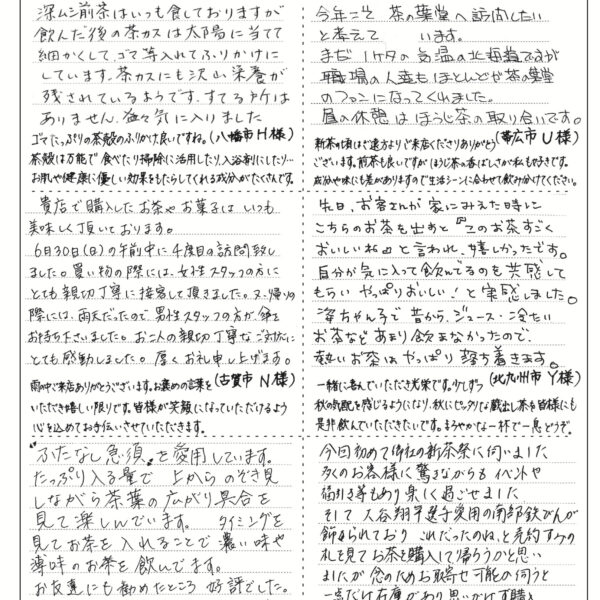 深ムシ煎茶はいつも食しておりますが
飲んだ後の茶カスは太陽に当てて
細かくして、ゴマ等入れてふりかけに
しています。茶カスにも沢山栄養が
残されているようです。すてる所は
ありません。益々気に入りました
ゴマたっぷりの茶殻のふりかけ良いですね。(八幡市H様)
茶殻は万能で食べたり掃除に活用したり入浴剤にしたり…
お肌や健康に優しい効果をもたらしてくれる成分がたくさんです。
貴店で購入したお茶やお菓子はいつも
美味しく頂いております。
6月30日(日)の午前中に4度目の訪問致し
ました。買い物の際には、女性スタッフの方に
とても親切丁寧に接客して頂きました。又、帰りの
際には、雨天だったので男性スタッフの方が、傘を
お持ち下さいました。お二人の親切丁寧なご対応に
とても感動しました。厚くお礼申し上げます。
雨の中ご来店ありがとうございます。お褒めの言葉を(古賀市N様)
いただき嬉しい限りです。皆様が笑顔になっていただけるよう
心を込めてお手伝いさせていただきます。
"ふたなし急須"を愛用しています。
たっぷり入る量で上からのぞき見
しながら茶葉の広がり具合を
見て楽しんでいます。タイミングを
見てお茶を入れることで濃い味や
薄味のお茶を飲んでます。
お友達にも勧めたところ好評でした。
今年こそ茶の葉堂へ訪問したい
と考えています。
まだ1ケタの気温の北海道ですが
職場の人達もほとんどが茶の葉堂
のファンになってくれました。
昼の休憩はほうじ茶の取り合いです。
新茶の頃はご遠方よりご来店くださりありがとう(帯広市U様)
ございます。煎茶も良いですがほうじ茶の香ばしさが私も好きです。
成分や味にも差がありますので生活シーンに合わせて飲み分けてください。
先日、お客さんが家にみえた時に
こちらのお茶を出すと『このお茶すごく
おいしいね』と言われ、嬉しかったです。
自分が気に入って飲んでるのも共感して
もらいやっぱりおいしい!と実感しました。
婆ちゃん子で昔から、ジュース・冷たい
お茶などあまり飲まなかったので、
熱いお茶はやっぱり落ち着きます。
一緒に喜んでいただき光栄です。少しずつ(北九州市Y様)
秋の気配を感じるようになり、秋にピッタリな蔵出し茶を皆様にも
是非飲んでいただきたいです。まろやかな一杯で一息どうぞ。
今回初めて御社の新茶祭に伺いました
多くのお客様に驚きながらもイベントや
福引き等もあり楽しく過ごせました
そして大谷翔平選手愛用の南部鉄びんが
飾られておりこれだったのね、と売約ずみの
札を見てお茶を購入して帰ろうかと思い
ましたが念のためお取寄せ可能か伺うと
一点だけ在庫があり思いがけず購入